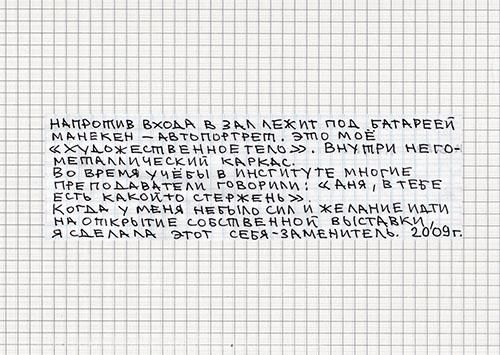 НАПРОТИВ ВХОДА В ЗАЛ ЛЕЖИТ ПОД БАТАРЕЕЙ
МАНЕКЕН – АВТОПОРТРЕТ. ЭТО МОЁ
«ХУДОЖЕСТВЕННОЕ ТЕЛО». ВНУТРИ НЕГО-
МЕТАЛЛИЧЕСКИЙ КАРКАС.
ВО ВРЕМЯ УЧЁБЫ В ИНСТИТУТЕ МНОГИЕ
ПРЕПОДАВАТЕЛИ ГОВОРИЛИ: «АНЯ, В ТЕБЕ
ЕСТЬ КАКОЙТО СТЕРЖЕНЬ».
КОГДА У МЕНЯ НЕБЫЛО СИЛ И ЖЕЛАНИЕ ИДТИ
НА ОТКРЫТИЕ СОБСТВЕННОЙ ВЫСТАВКИ,
Я СДЕЛАЛА ЭТОТ СЕБЯ-ЗАМЕНИТЕЛЬ. 2009г.